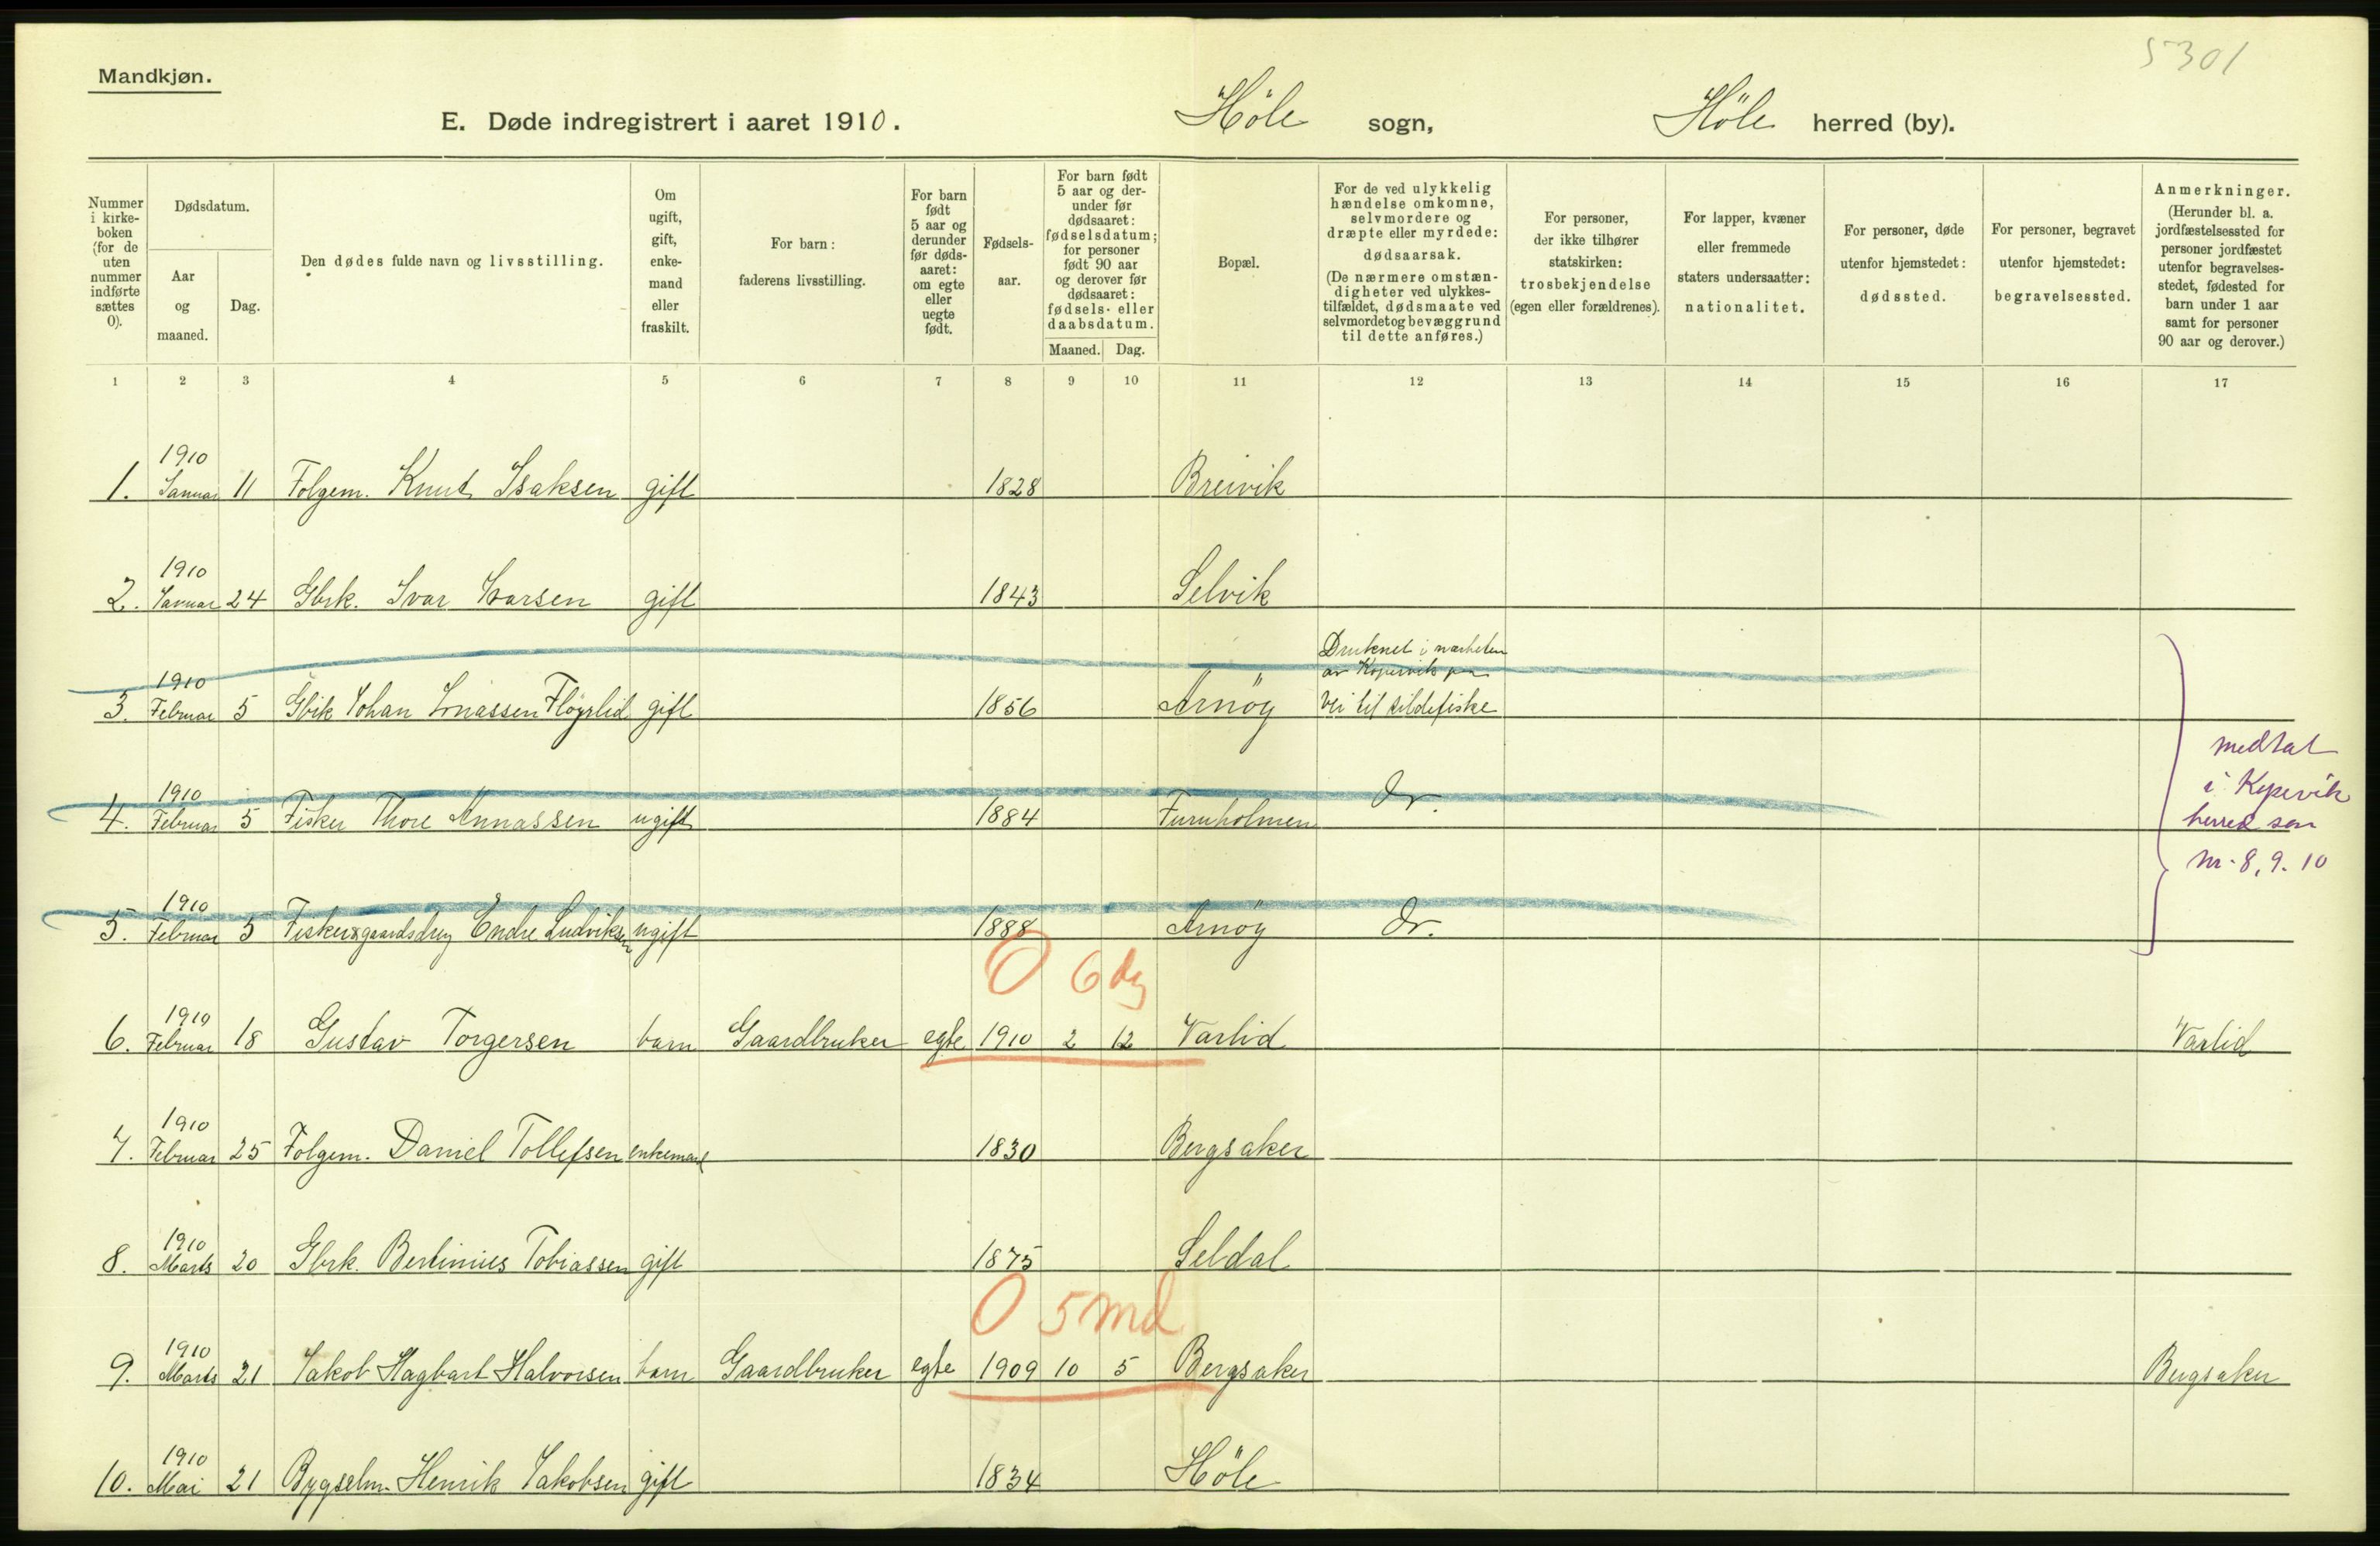 5301
Mandkjøn.
E. Døde indregistrert i aaret 1910. Höle sogn, Höle herred (by).
Nummer i kirkeboken (for de uten nummer indførte sættes 0).
Dødsdatum.
Aar og maaned.
Dag.
Den dødes fulde navn og livsstilling.
Om ugift, gift, enkemand eller fraskilt.
For barn: faderens livsstilling.
For barn født 5 aar og derunder før dødsaaret: om egte eller uegte født.
Fødselsaar.
For barn født 5 aar og derunder før dødsaaret: fødselsdatum; for personer født 90 aar og derover før dødsaaret: fødsels- eller daabsdatum.
Maaned. Dag.
Bopæl.
For de ved ulykkelig hændelse omkomne, selvmordere og dræpte eller myrdede: dødsaarsak. (De nærmere omstændigheter ved ulykkestilfældet, dødsmaate ved selvmordet og bevæggrund til dette anføres.)
For personer, der ikke tilhører statskirken: trosbekjendelse (egen eller forældrenes).
For lapper, kvæner eller fremmede staters undersaatter: nationalitet.
For personer, døde utenfor hjemstedet: dødssted.
For personer, begravet utenfor hjemstedet: begravelsessted.
Anmerkninger. (Herunder bl. a. jordfæstelsessted for personer jordfæstet utenfor begravelsesstedet, fødested for barn under 1 aar samt for personer 90 aar og derover.)
1 2 3 4 5 6 7 8 9 10 11 12 13 14 15 16 17
1910
1. Januar 11 Folgem. Knut Isaksen gift 1828 Breivik
1910
2. Januar 24 Gbrk. Ivar Ivarsen gift 1843 Selvik
Druknet i nærheten
1910 av Kopervik paa
3. Februar 5 Gbrk Johan Jonassen Fløyrlid gift 1856 Arnöy Vei til sildefiske
1910
4. Februar 5 Fisker Thore Annassen ugift 1884 Furuholmen do.
medtat
i Kopervik
herred som
Nr. 8, 9. 10
1910
5. Februar 5 Fisker & gaardsdreng Endre Ludviksen ugift 1888 Arnöy do.
0 6 dg
1910
6. Februar 18 Gustav Torgersen barn Gaardbruker egte 1910 2 12 Varlid Varlid
1910
7. Februar 25 Folgem. Daniel Tollefsen enkemand 1830 Bergsaker
1910
8. Marts 20 Gbrk. Bertinius Tobiassen gift 1875 Seldal
0 5 md
1910
9. Marts 21 Jakob Hagbart Halvorsen barn Gaardbruker egte 1909 10 5 Bergsaker Bergsaker
1910
10. Mai 21 Bygselm. Henrik Jakobsen gift 1834 Höle